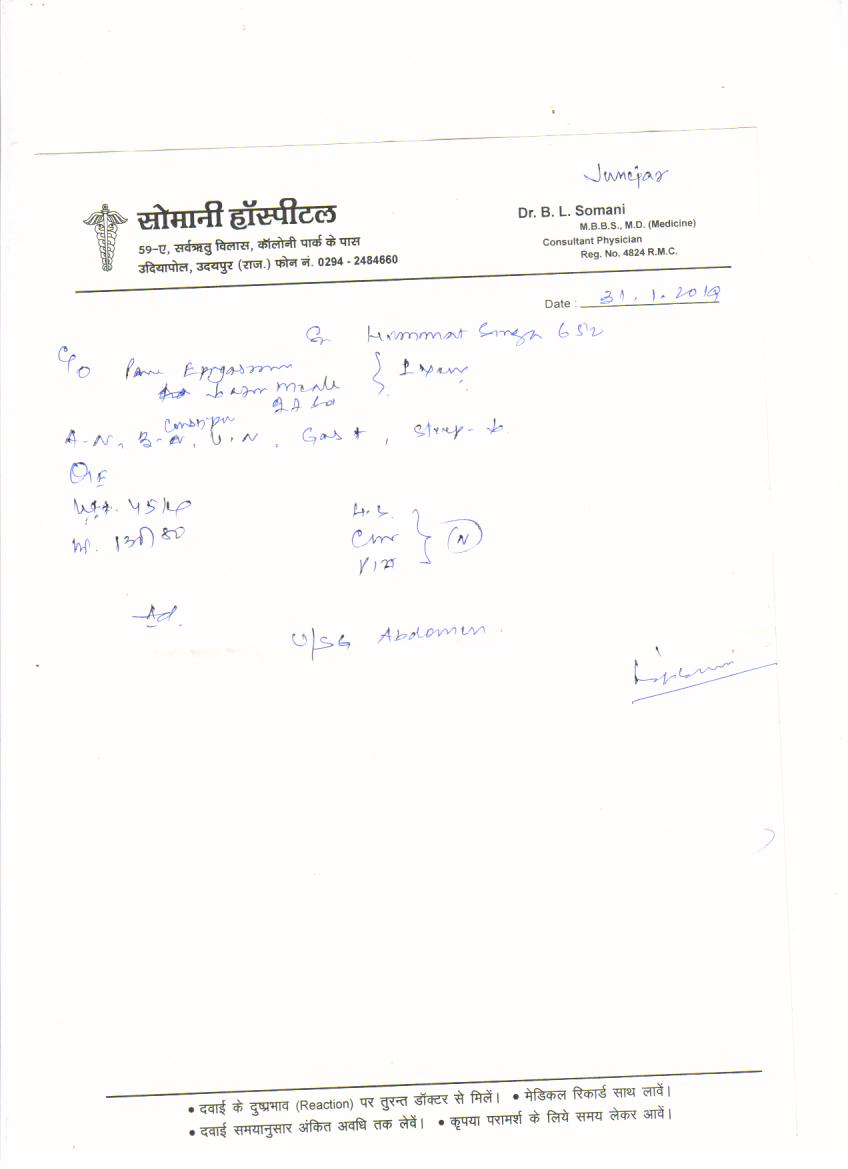 सोमानी हॉस्पीटल
59-ए, सर्वऋतु विलास, कॉलोनी पार्क के पास
उदियापोल, उदयपुर (राज.) फोन नं. 0294 - 2484660
Dr. B. L. Somani
M.B.B.S., M.D. (Medicine)
Consultant Physician
Reg. No. 4824 R.M.C.
Date : 31.1.2019
Himmat Singh
C/o Pain Epigastrium
A-N, B-N, U.N, Gas +, Sleep-
O/E
Wt.
130/80
H.S.
N
Ad.
U/SG Abdomen.
• दवाई के दुष्प्रभाव (Reaction) पर तुरन्त डॉक्टर से मिलें। • मेडिकल रिकार्ड साथ लावें।
• दवाई समयानुसार अंकित अवधि तक लेवें। • कृपया परामर्श के लिये समय लेकर आवें।